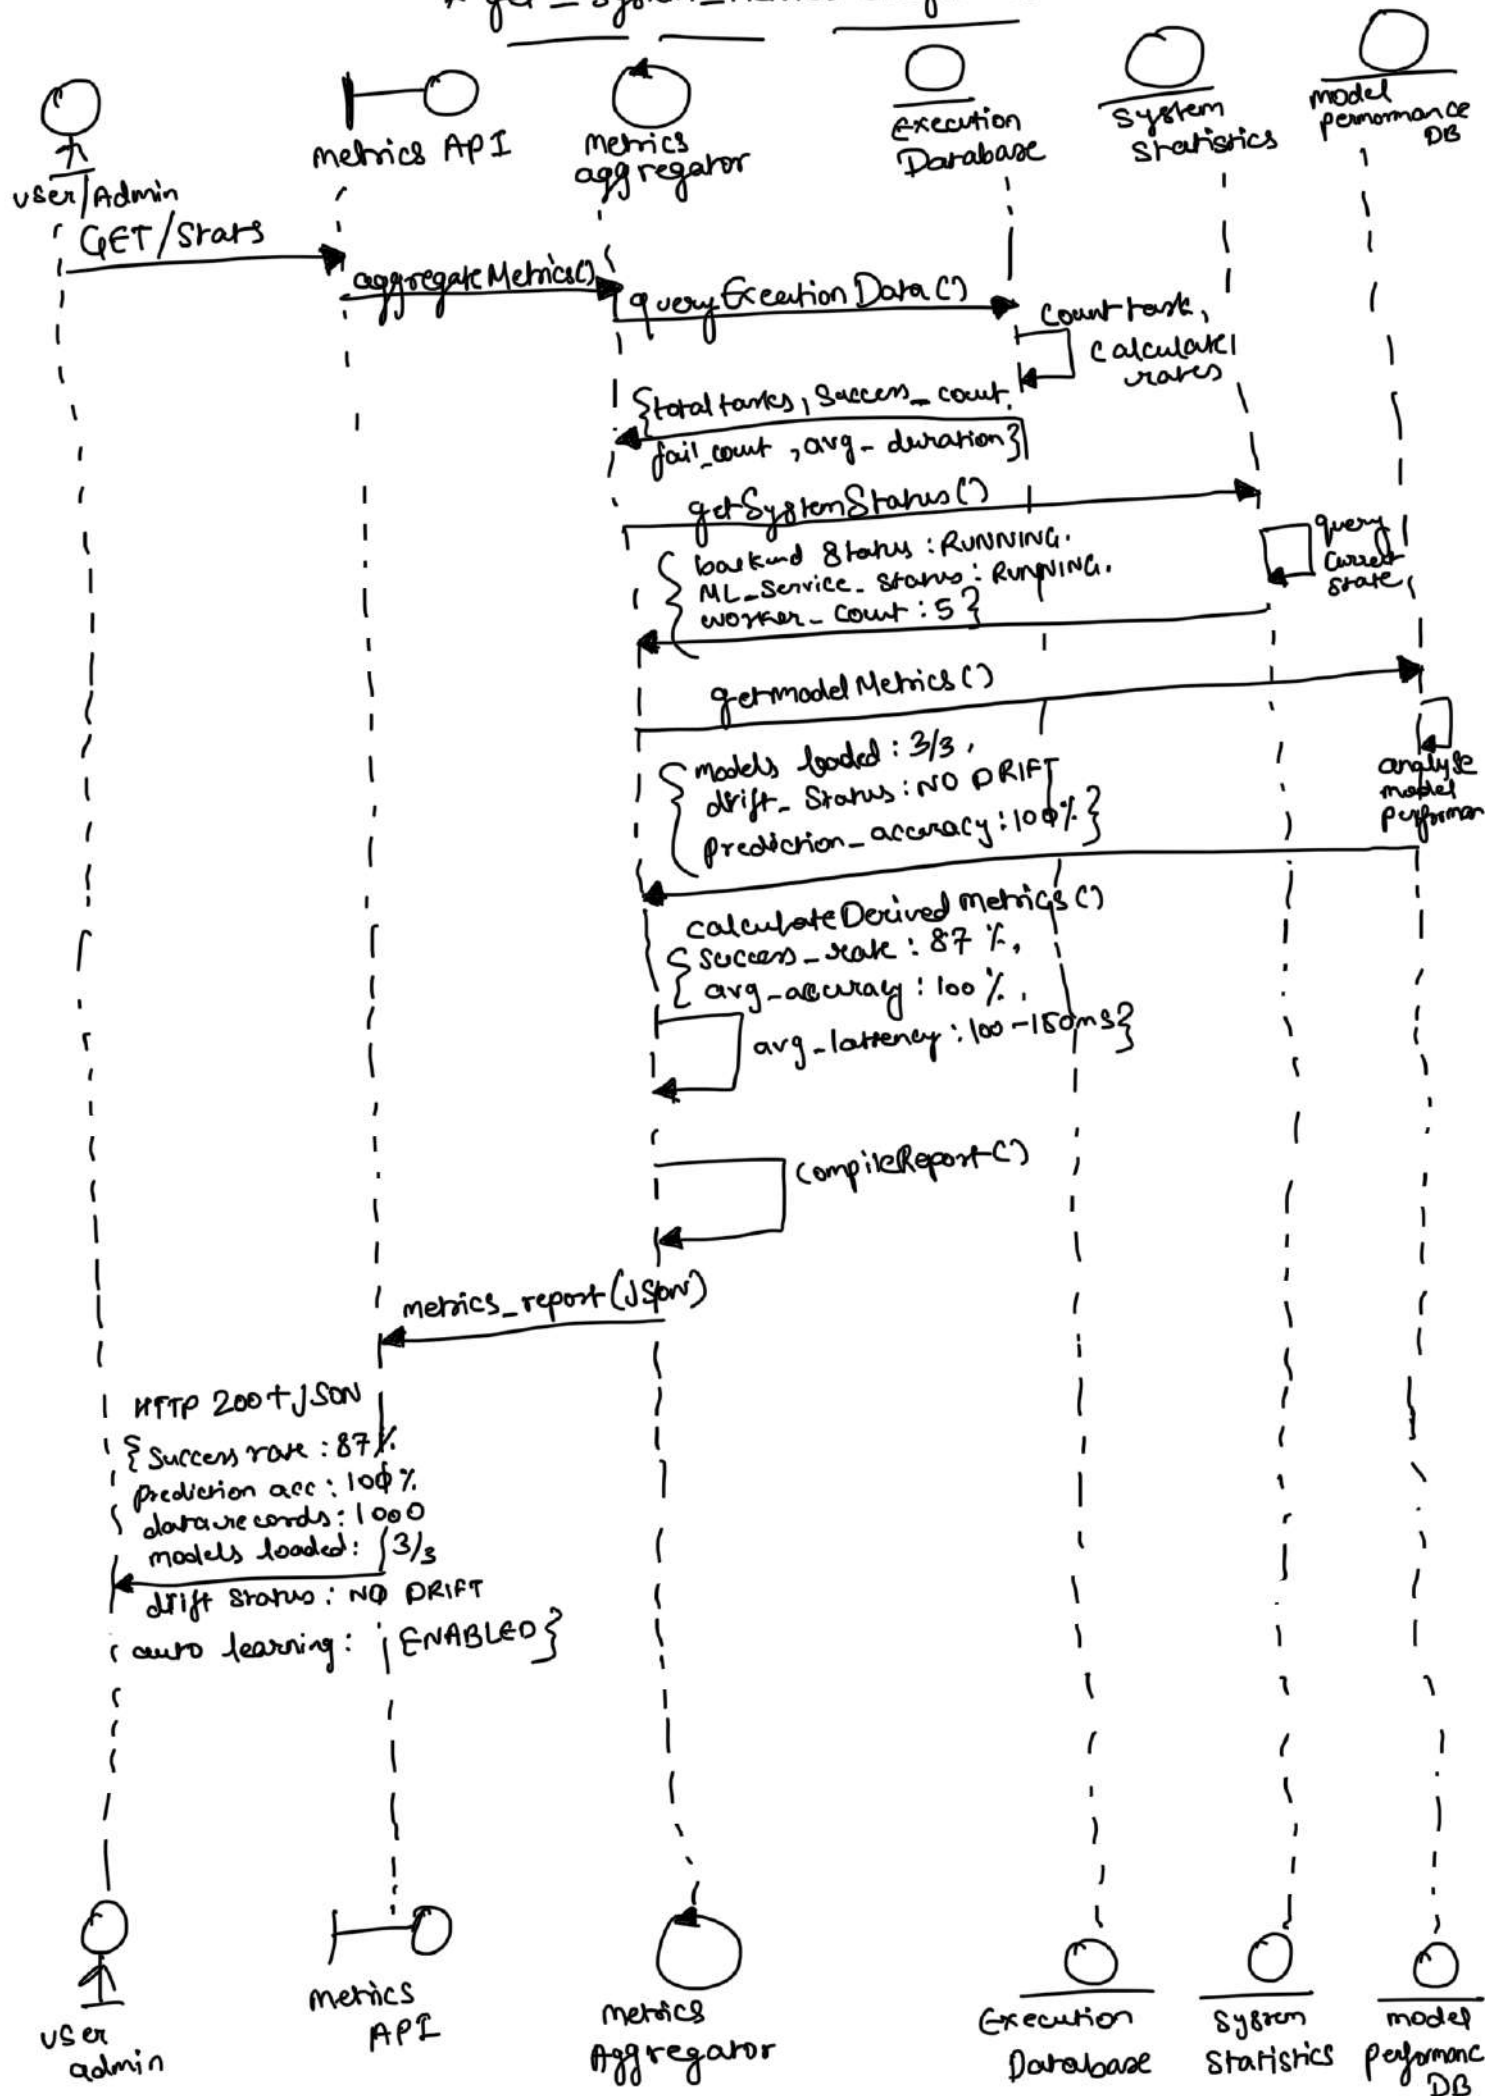 user/Admin
metrics API
metrics
aggregator
Execution
Database
System
Statistics
model
permormance
DB
GET/Stats
aggregateMetrics()
queryExecutionData()
Count task,
calculate
rates
{total tasks, Success_count,
fail_count, avg_duration}
getSystemStatus()
query
current
state
{backend Status: RUNNING.
ML_Service_Status: RUNNING.
worker_count: 5}
getmodelMetrics()
analyse
model
Performan
{models loaded: 3/3,
drift_Status: NO DRIFT
prediction_accuracy: 100%}
calculateDerivedMetrics()
{success_rate: 87%,
avg_accuracy: 100%,
avg_lattency: 100-150ms}
compileReport()
metrics_report(JSON)
HTTP 200+JSON
{Success rate: 87%
prediction acc: 100%
data records: 1000
models loaded: 3/3
drift status: NO DRIFT
auto learning: ENABLED}
user
admin
metrics
API
metrics
Aggregator
Execution
Database
System
Statistics
model
performanc
DB